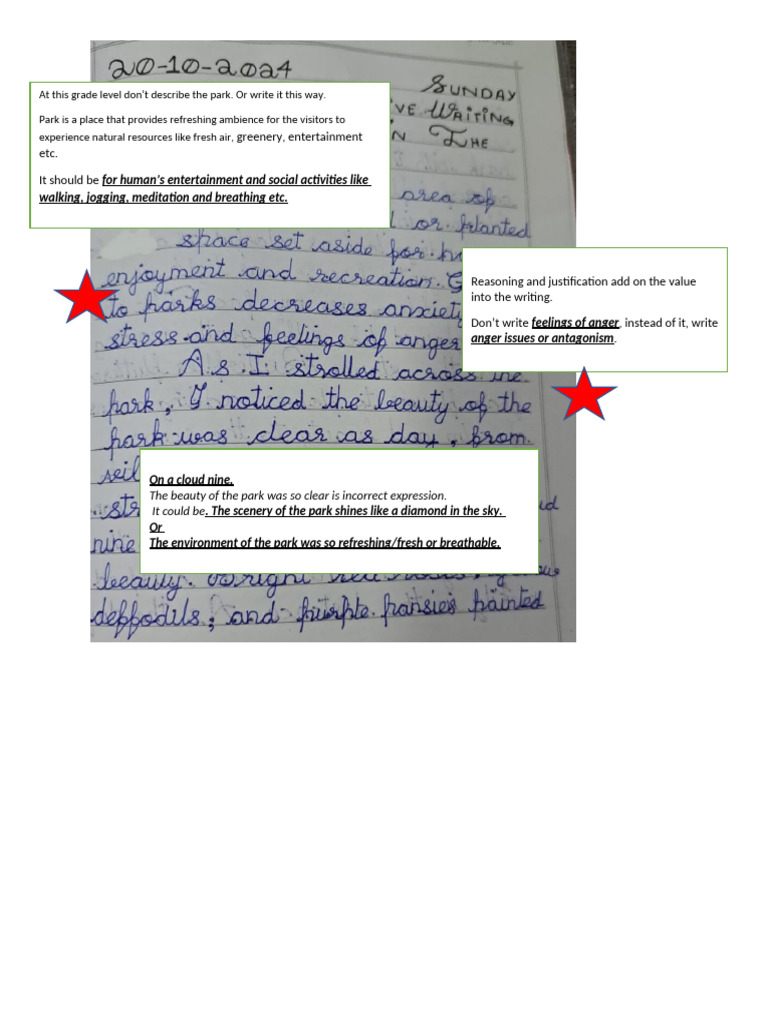 20-10-2024
SUNDAY
VE WRITING
N THE
At this grade level don't describe the park. Or write it this way.
Park is a place that provides refreshing ambience for the visitors to
experience natural resources like fresh air, greenery, entertainment
etc.
It should be for human's entertainment and social activities like
walking, jogging, meditation and breathing etc.
area of
or planted
space set aside for
enjoyment and recreation.
to parks decreases anxiety
stress and feelings of anger
Reasoning and justification add on the value
into the writing.
Don't write feelings of anger, instead of it, write
anger issues or antagonism.
As I strolled across the
park, I noticed the beauty of the
park was clear as day, from
On a cloud nine.
The beauty of the park was so clear is incorrect expression.
It could be. The scenery of the park shines like a diamond in the sky.
Or
The environment of the park was so refreshing/fresh or breathable.
nine
beauty. Bright red roses,
deffodils, and purple pansies painted